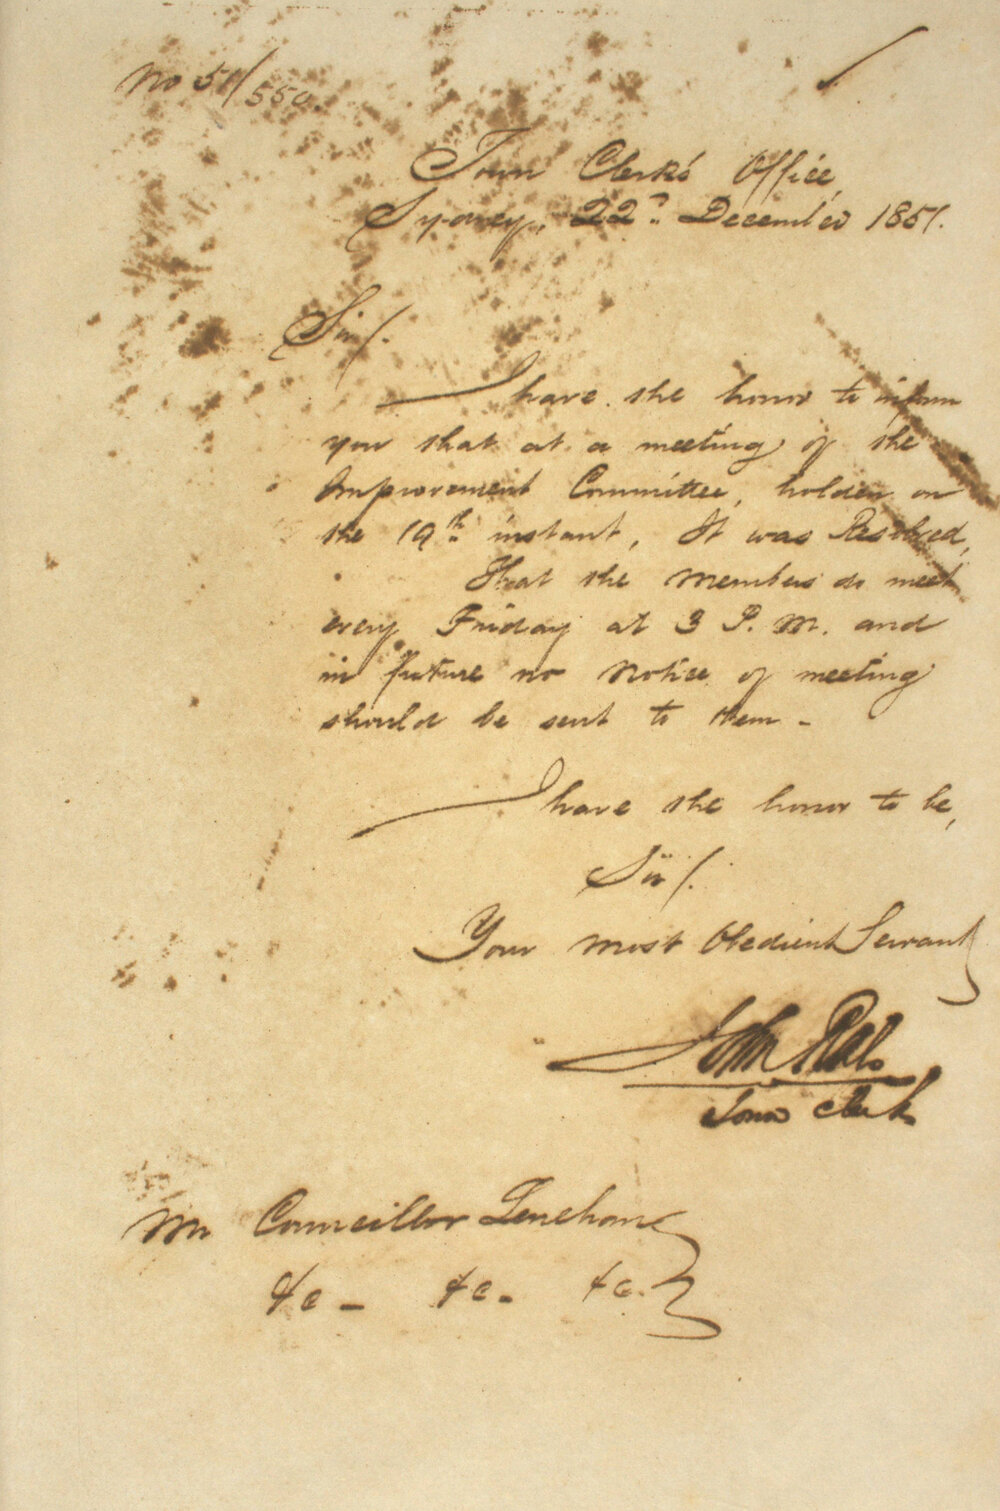 No 51/550.
Town Clerk's Office,
Sydney, 22nd December 1851.
Sir/.
I have the honor to inform
you that at a meeting of the
Improvement Committee, holden on
the 19th instant, It was Resolved,
That the members do meet
every Friday at 3 P.M. and
in future no notice of meeting
should be sent to them -
I have the honor to be,
Sir/.
Your most Obedient Servant
John Rae
Town Clerk
Mr Councillor Lenehan
&c - &c - &c.